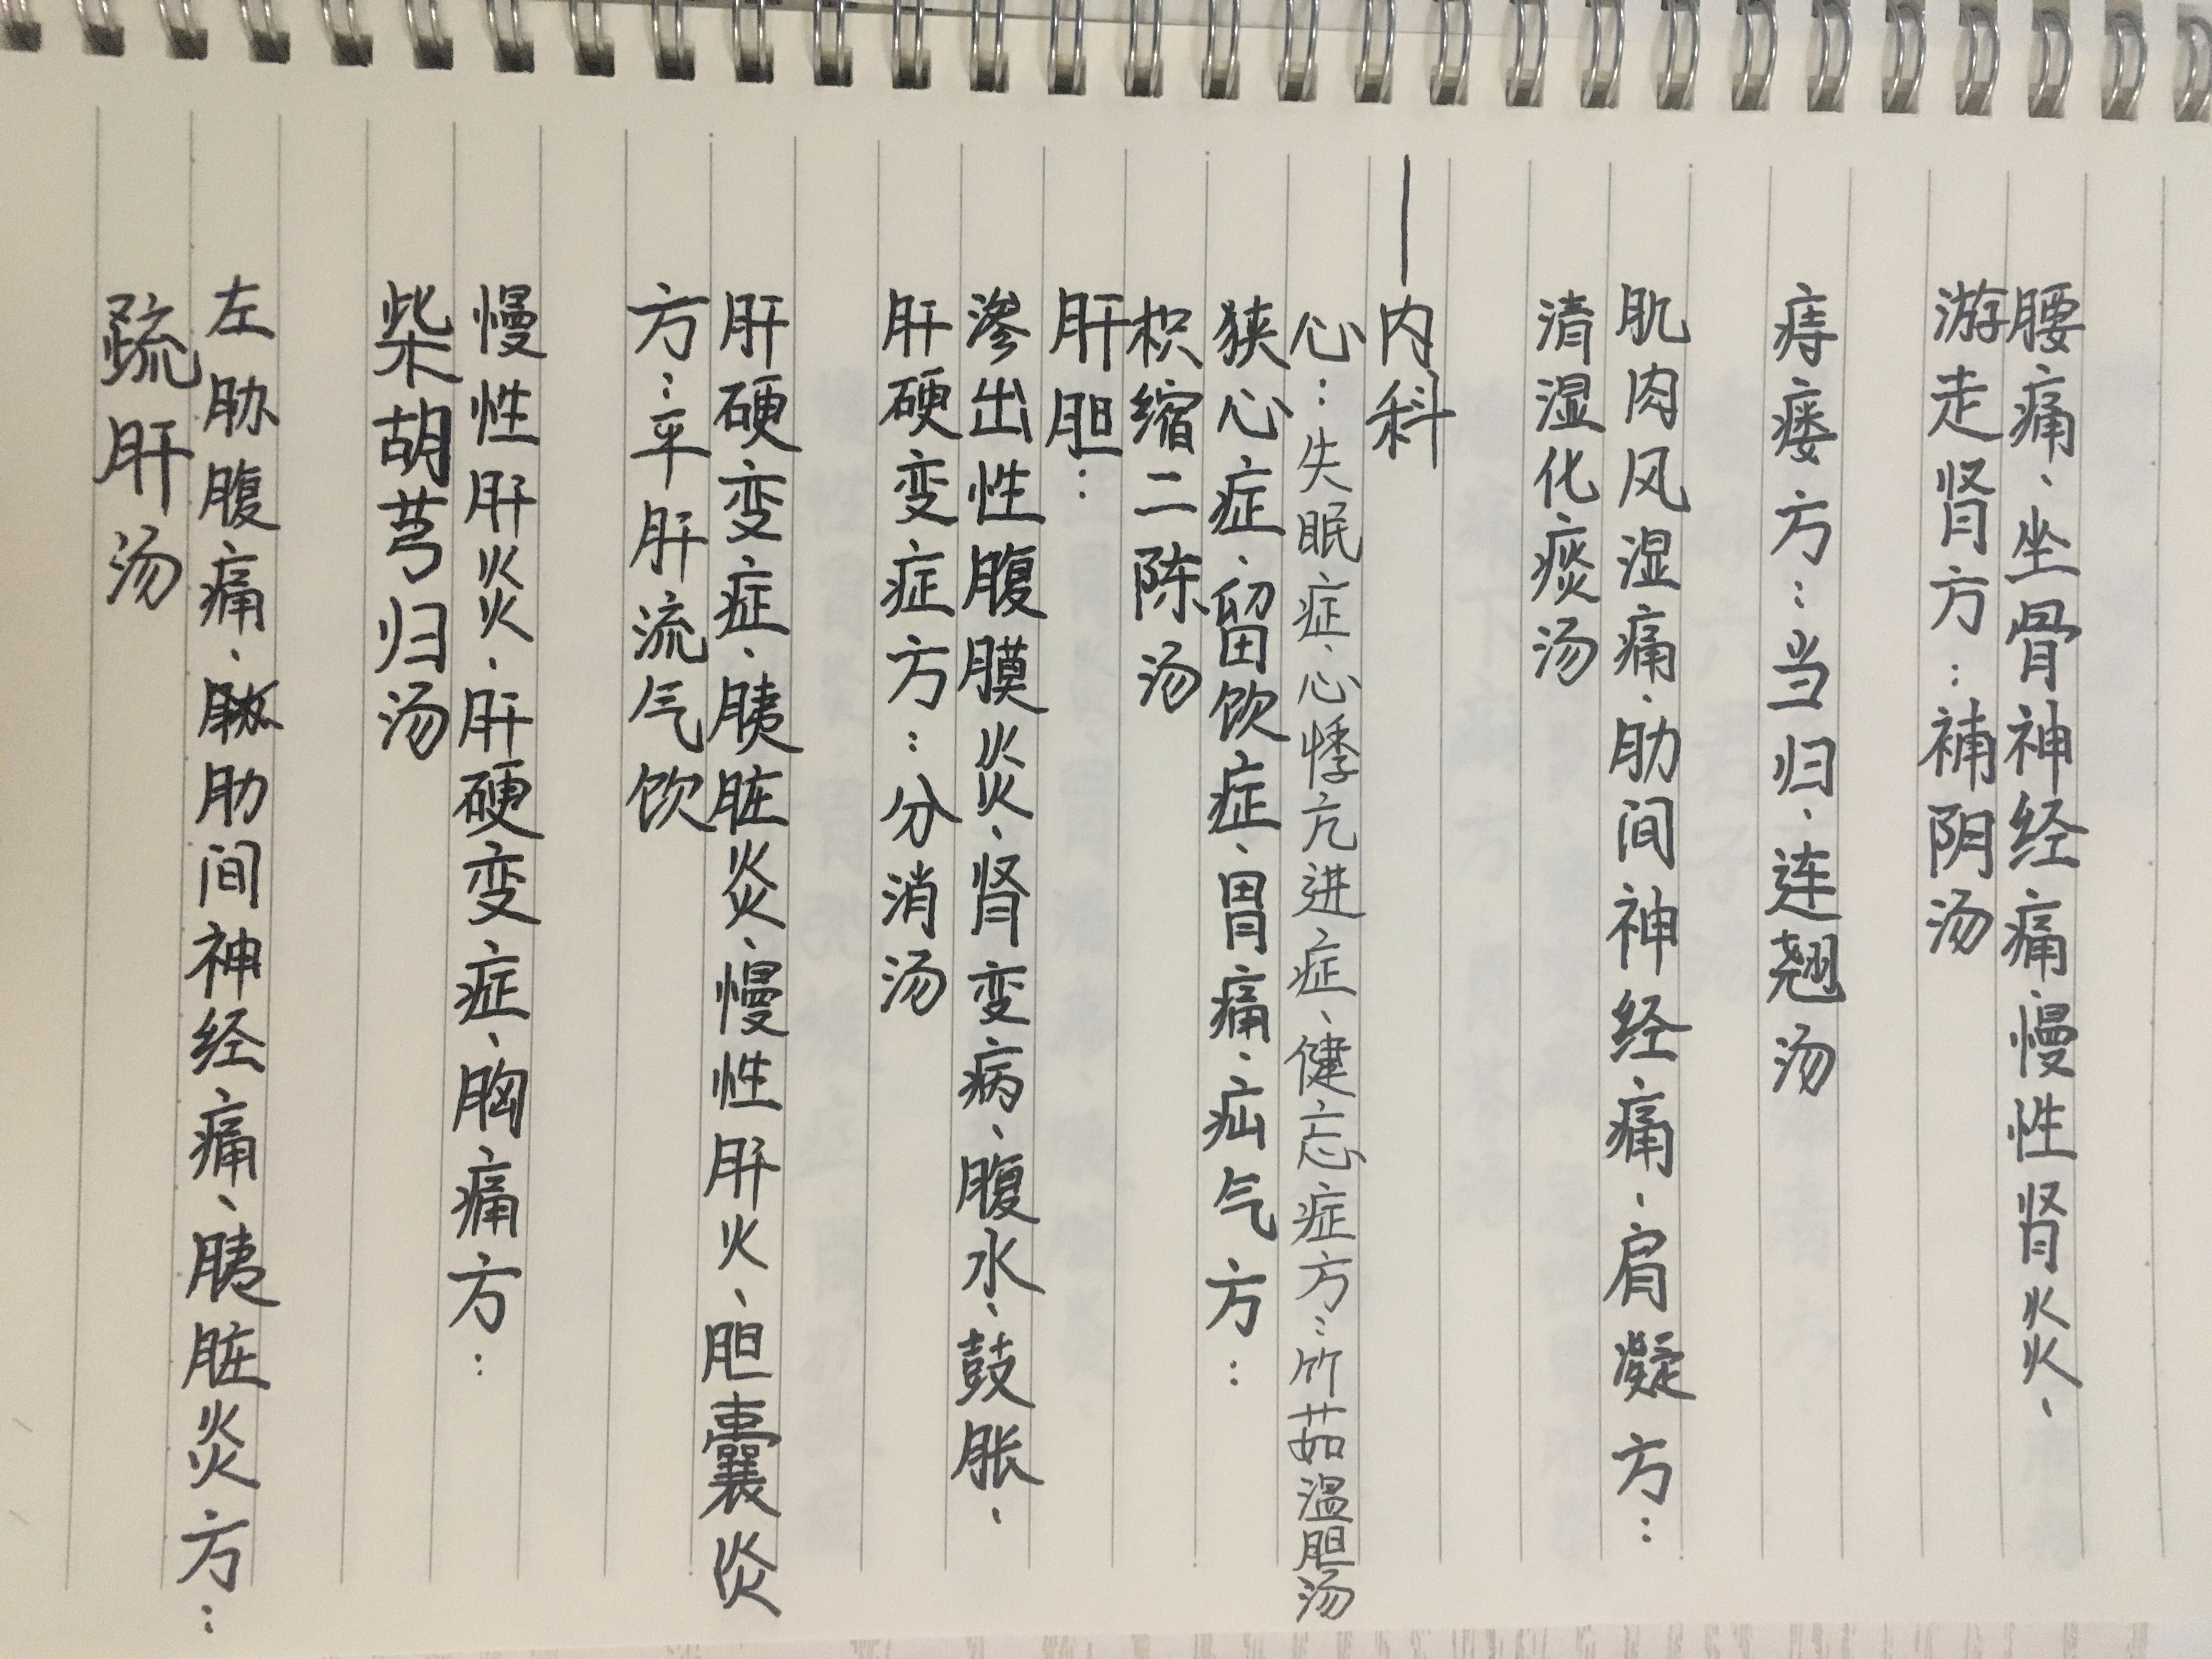 腰痛、坐骨神经痛、慢性肾炎、
游走肾方：补阴汤
痔瘘方：当归、连翘汤
肌肉风湿痛、肋间神经痛、肩凝方：
清湿化痰汤
一内科
心：失眠症、心悸亢进症、健忘症方：竹茹温胆汤
狭心症、留饮症、胃痛、疝气方：
枳缩二陈汤
肝胆：
渗出性腹膜炎、肾变病、腹水、鼓胀、
肝硬变症方：分消汤
肝硬变症、胰脏炎、慢性肝火、胆囊炎
方：平肝流气饮
慢性肝炎、肝硬变症、胸痛方：
柴胡芎归汤
左胁腹痛、肋间神经痛、胰脏炎方：
疏肝汤